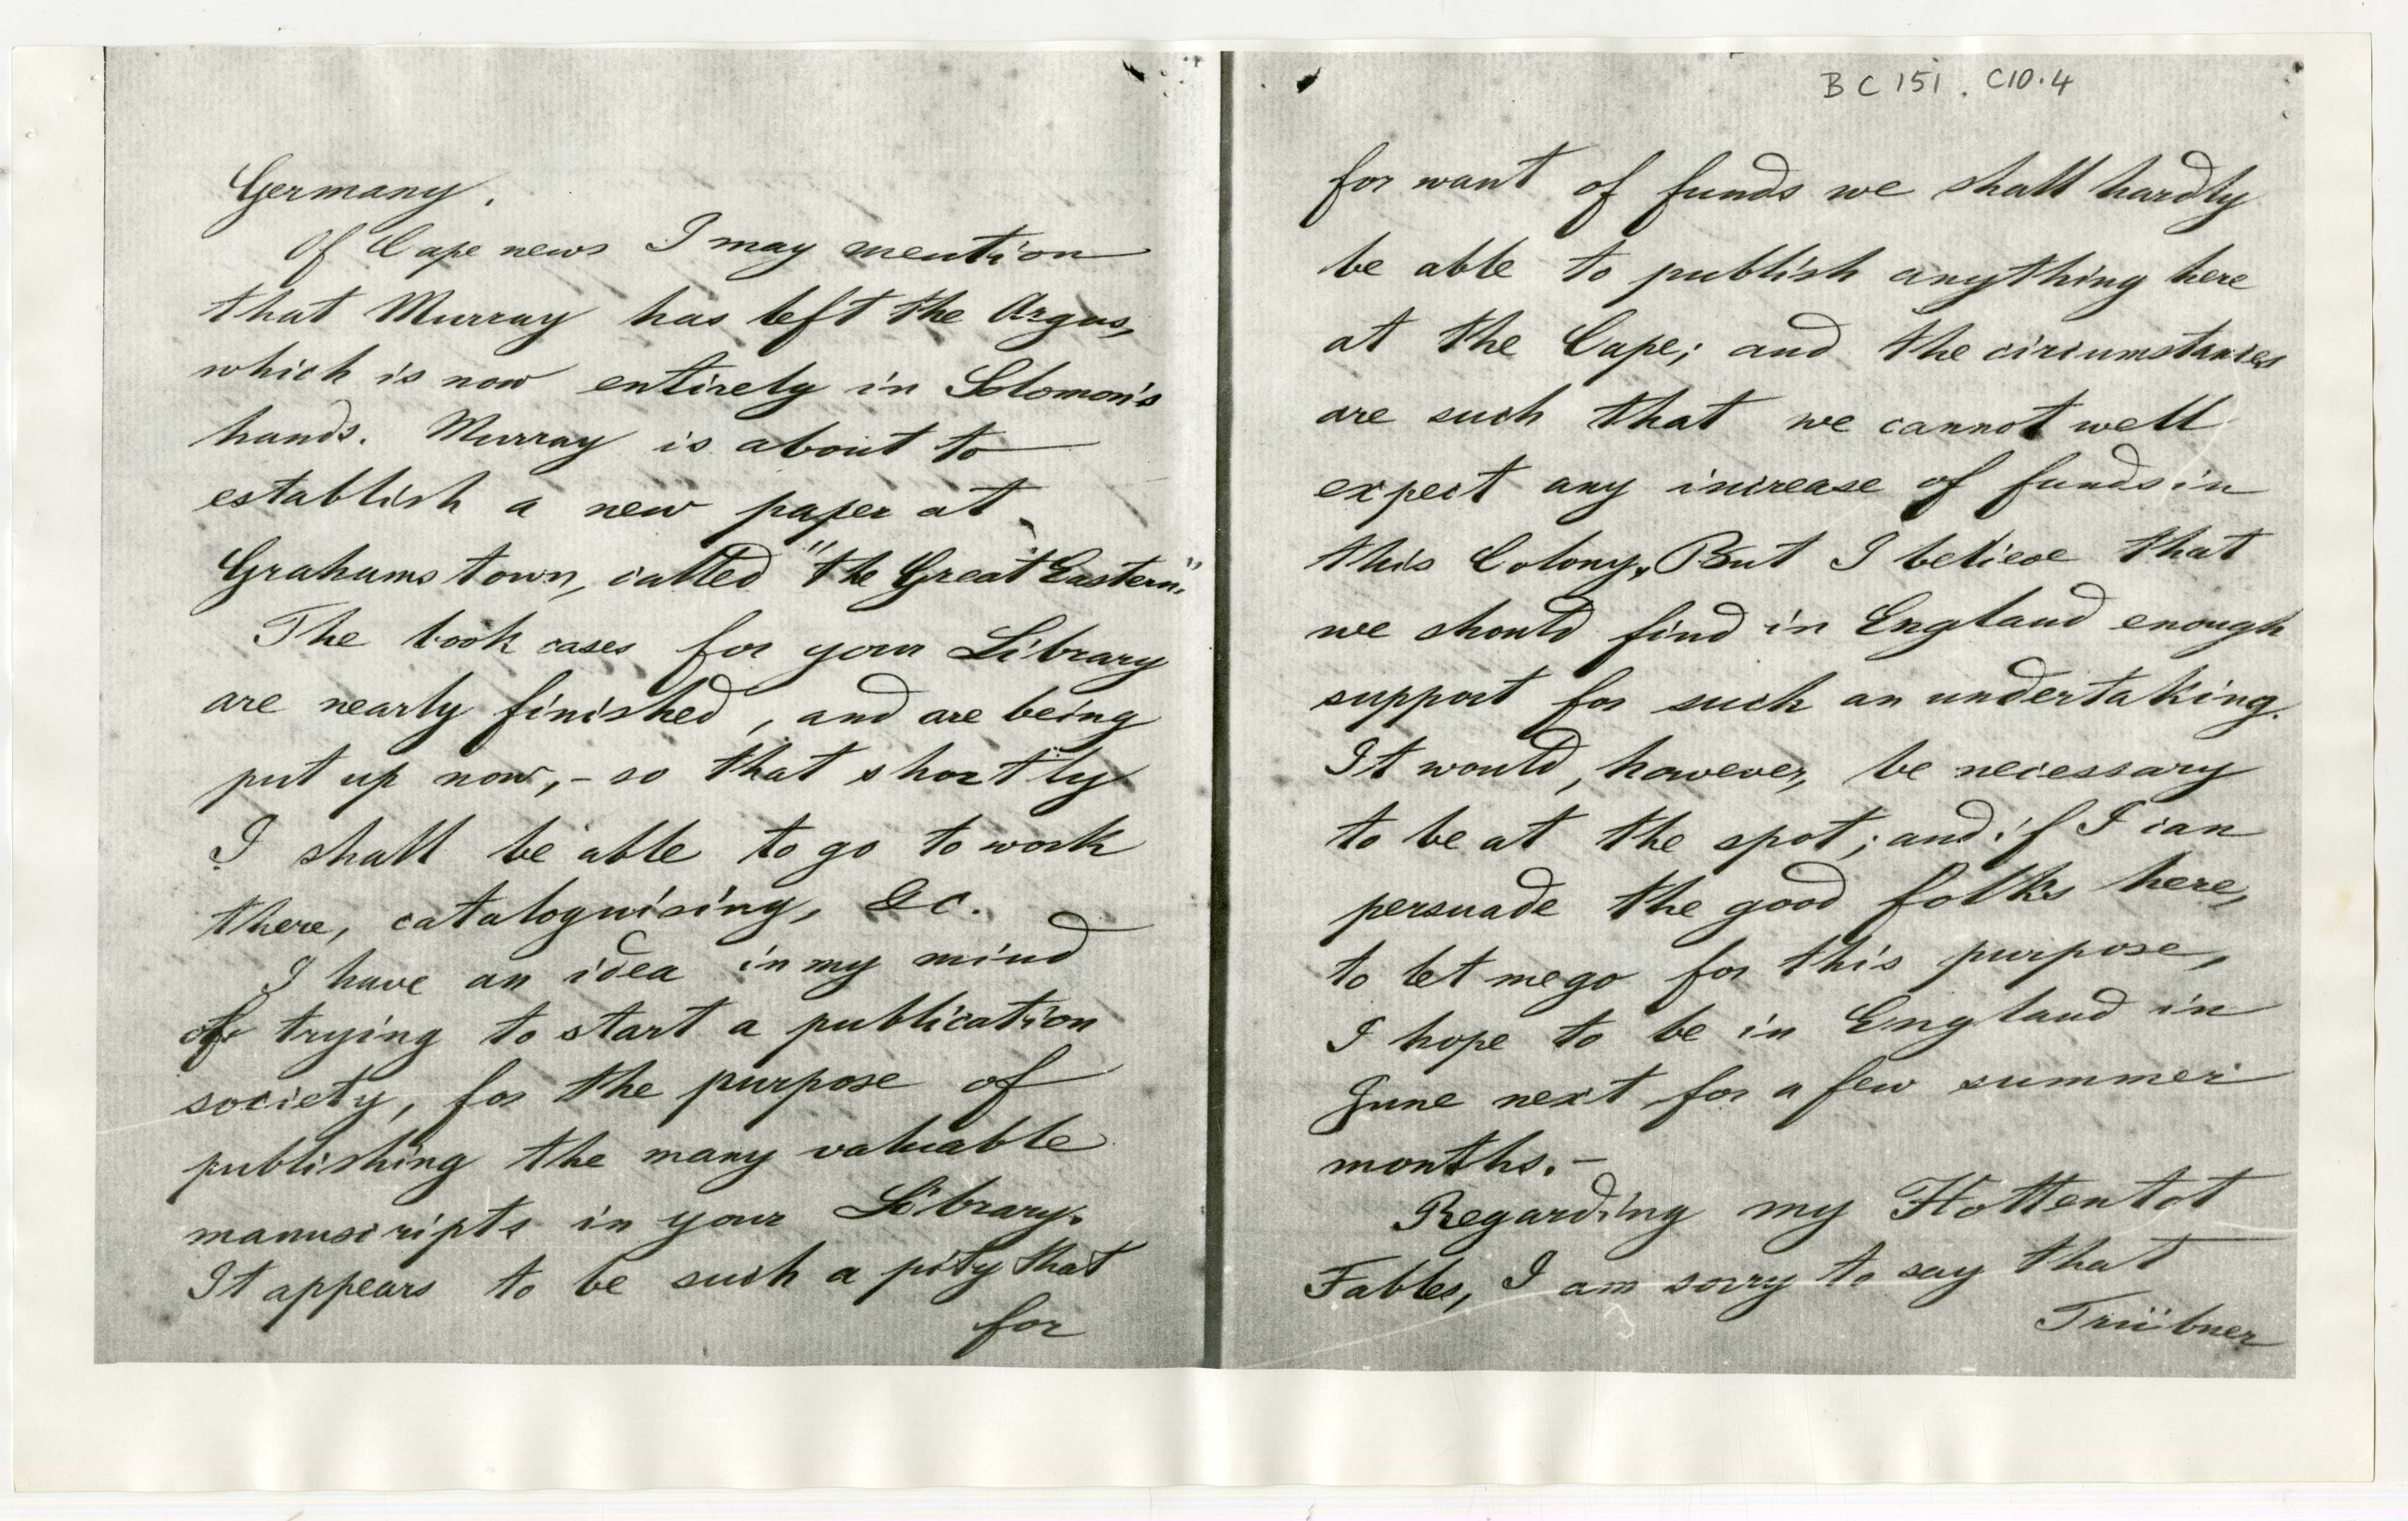 Germany.
Of Cape news I may mention
that Murray has left the Argus,
which is now entirely in Solomon's
hands. Murray is about to
establish a new paper at
Grahamstown, called "the Great Eastern."
The book cases for your Library
are nearly finished, and are being
put up now, - so that shortly
I shall be able to go to work
there, cataloguising, &c.
I have an idea in my mind
of trying to start a publication
society, for the purpose of
publishing the many valuable
manuscripts in your Library.
It appears to be such a pity that
for
BC 151. C10.4
for want of funds we shall hardly
be able to publish anything here
at the Cape; and the circumstances
are such that we cannot well
expect any increase of funds in
this Colony. But I believe that
we should find in England enough
support for such an undertaking.
It would, however, be necessary
to be at the spot; and if I can
persuade the good folks here,
to let me go for this purpose,
I hope to be in England in
June next for a few summer
months. -
Regarding my Hottentot
Fables, I am sorry to say that
3
Trübner